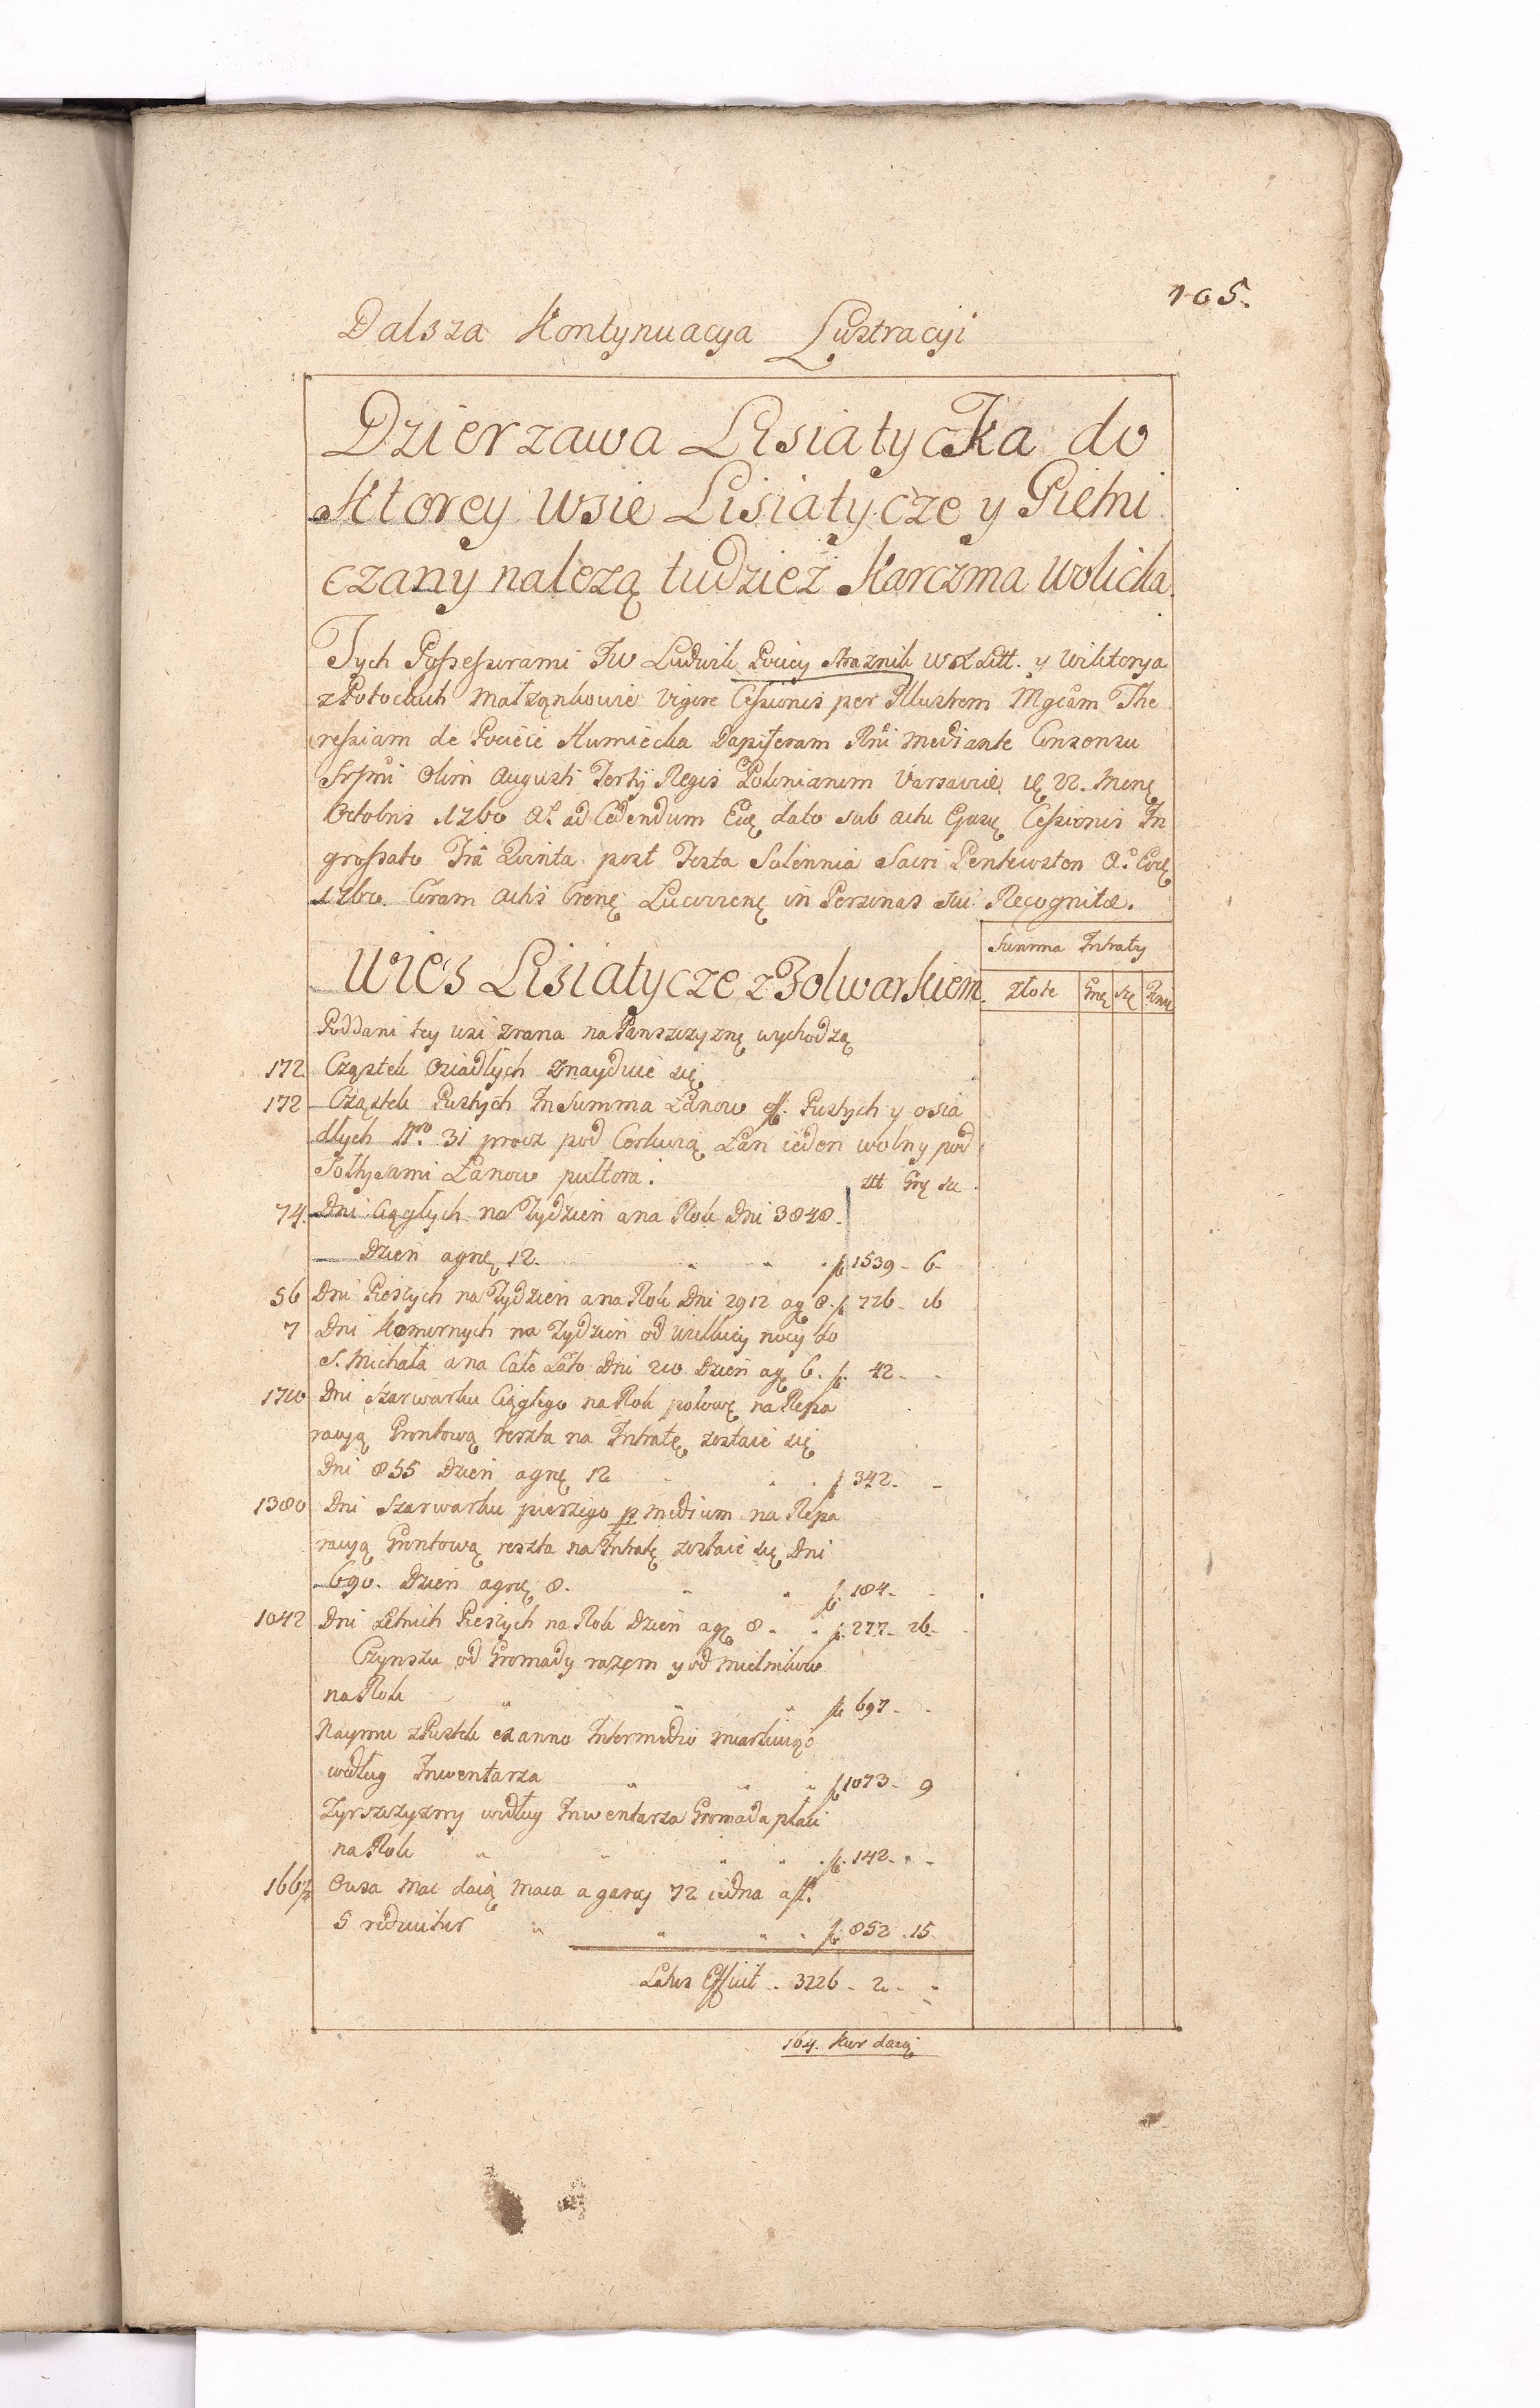 105.
Dalsza Kontynuacya Lustracyi
Dzierzawa Lisiatyczka do
Ktorey wsie Lisiatycze y Pietni
czany nalezą tudziesz Karczma Wolicka.
Tych Possessorami JW Ludwik Pociey Straznik W X Litt. y Wiktorya
z Potockich Małżąnkowie vigore Cessionis per Illustrem Mgcam The
ressiam de Pocieie Humiecka Dapiferam Rni mediante Consensu
Srsmi Olim Augusti Tertij Regis Poloniarum Varsaviæ 22. Mens
Octobris 1760 Ao ad Cedendum dato sub actu Cessionis In
grossato Fra Quinta post Festa Solennia Sacri Pentecosten Ao
1760. Coram Actis in Personas sui Recognitæ.
Summa Intraty
Wies Lisiatycze z Folwarkiem
złote Grę szę
Poddani tey wsi zrana na Panszczyznę wychodzą
172 Cząstek Osiadłych znayduie się
172 Cząstek Pustych In Summa Łanow eff. Pustych y osia
dłych Nro 31 procz pod Cerkwią Łan ieden wolny pod
Sołtysami Łanow pułtora.
złł Grę sz
74. Dni Ciągłych na Tydzień a na Rok Dni 3848.
Dzien agrę 12. " " f 1539 - 6
56 Dni Pieszych na Tydzien a na Rok Dni 2912 ag 8. f. 776 - 16
7 Dni Komornych na Tydzien od Wielkiey nocy do
S. Michała a na Całe Lato Dni 210 Dzien ag 6. f. 42 -
1710 Dni Szarwarku Ciągłego na Rok połowę na Repa
racyą Gruntową reszta na Intratę zostaie się
Dni 855 Dzien agrę 12 f 342 -
1380 Dni Szarwarku pieszego p medium na Repa
racyą Gruntową reszta na Intratę zostaie się Dni
690. Dzien agrę 8. f. 184 -
1042 Dni Letnich Pieszych na Rok Dzien ag 8 f. 277 - 26 -
Czynszu od Gromady razem y od Mielnikow
na Rok " " " f 697 -
Naymu z Pustek ex anno Intermedio
według Inwentarza " " " f 1073 - 9
Zyrszczyzny według Inwentarza Gromada płaci
na Rok " " " f. 142 -
Owsa Mac daią Maca a garcy 72 iedna a fl.
5 " " " f. 852 . 15
Latus Efficit - 3226 - 2 -
164. Kur daią